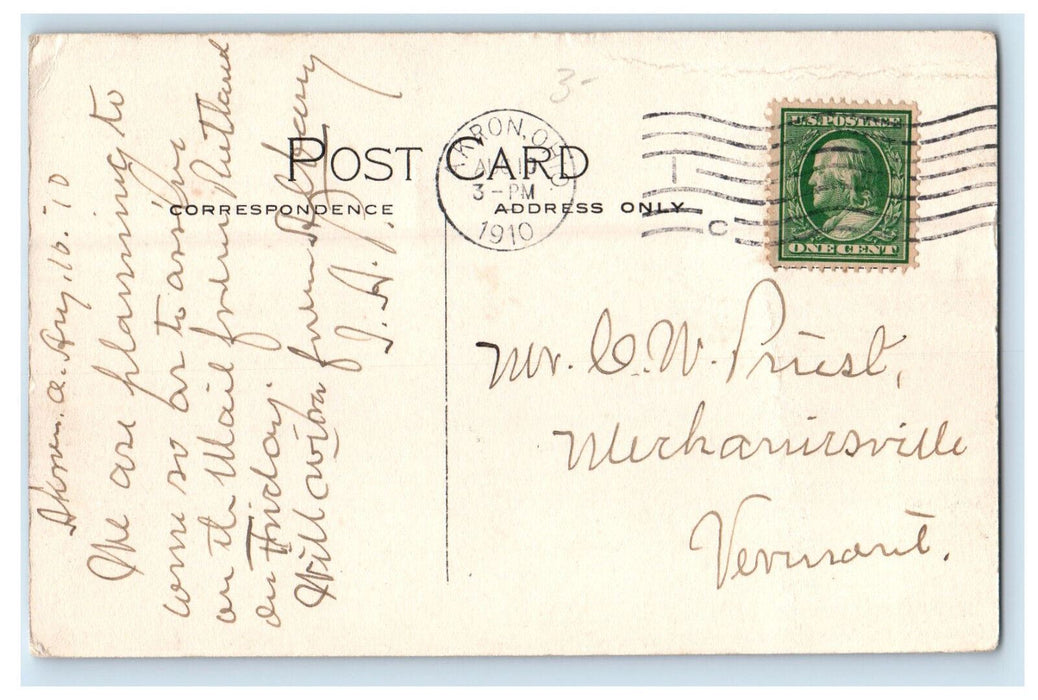 POST CARD
CORRESPONDENCE
ADDRESS ONLY
3-
AKRON, OHIO
3-PM
1910
C
U.S. POSTAGE
ONE CENT
Akron. O. Aug. 16. '10
We are planning to
come so as to arrive
on the Mail from Rutland
on Friday.
Will write from Albany
J. A. J.
Mr. C. W. Priest,
Mechanicsville
Vermont.